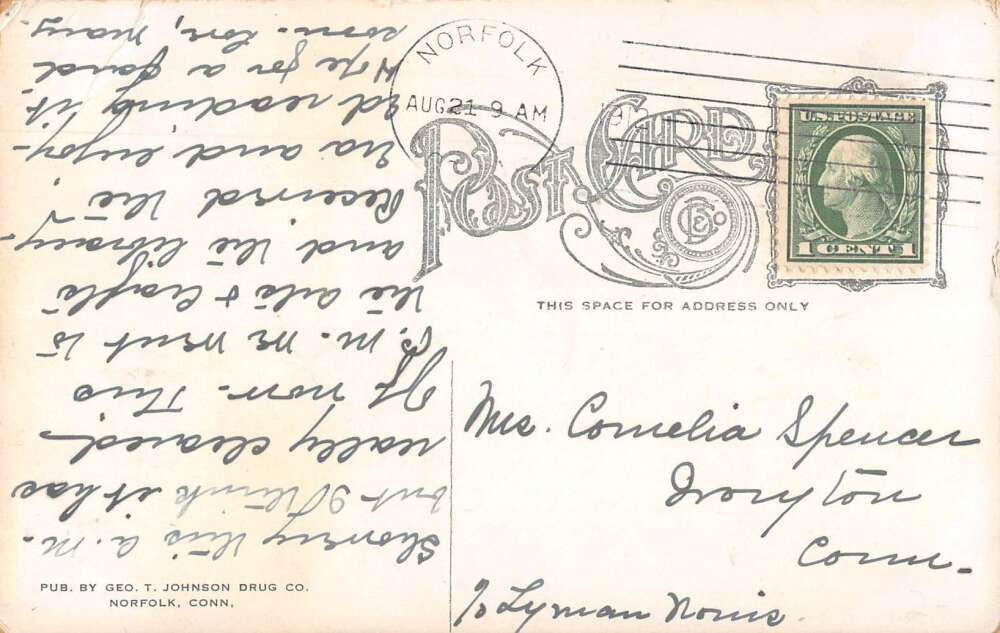 NORFOLK
AUG 21 9 AM
POST CARD
U.S. POSTAGE
1 CENT 1
THIS SPACE FOR ADDRESS ONLY
Mrs. Cornelia Spencer
Ivoryton
Conn.
c/o Lyman Norris.
Showery this a.m.
but I think it has
really cleared
off now. This
P. M. we went to
the arts & crafts
and the library.
Received the
Era and enjoy-
ed reading it.
Hope for a good
many.
PUB. BY GEO. T. JOHNSON DRUG CO.
NORFOLK, CONN.